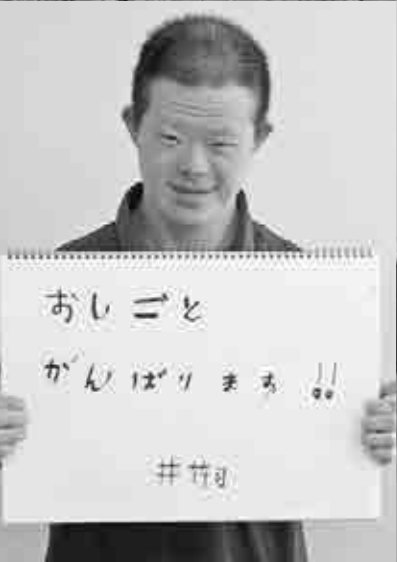 おしごと
がんばります!!